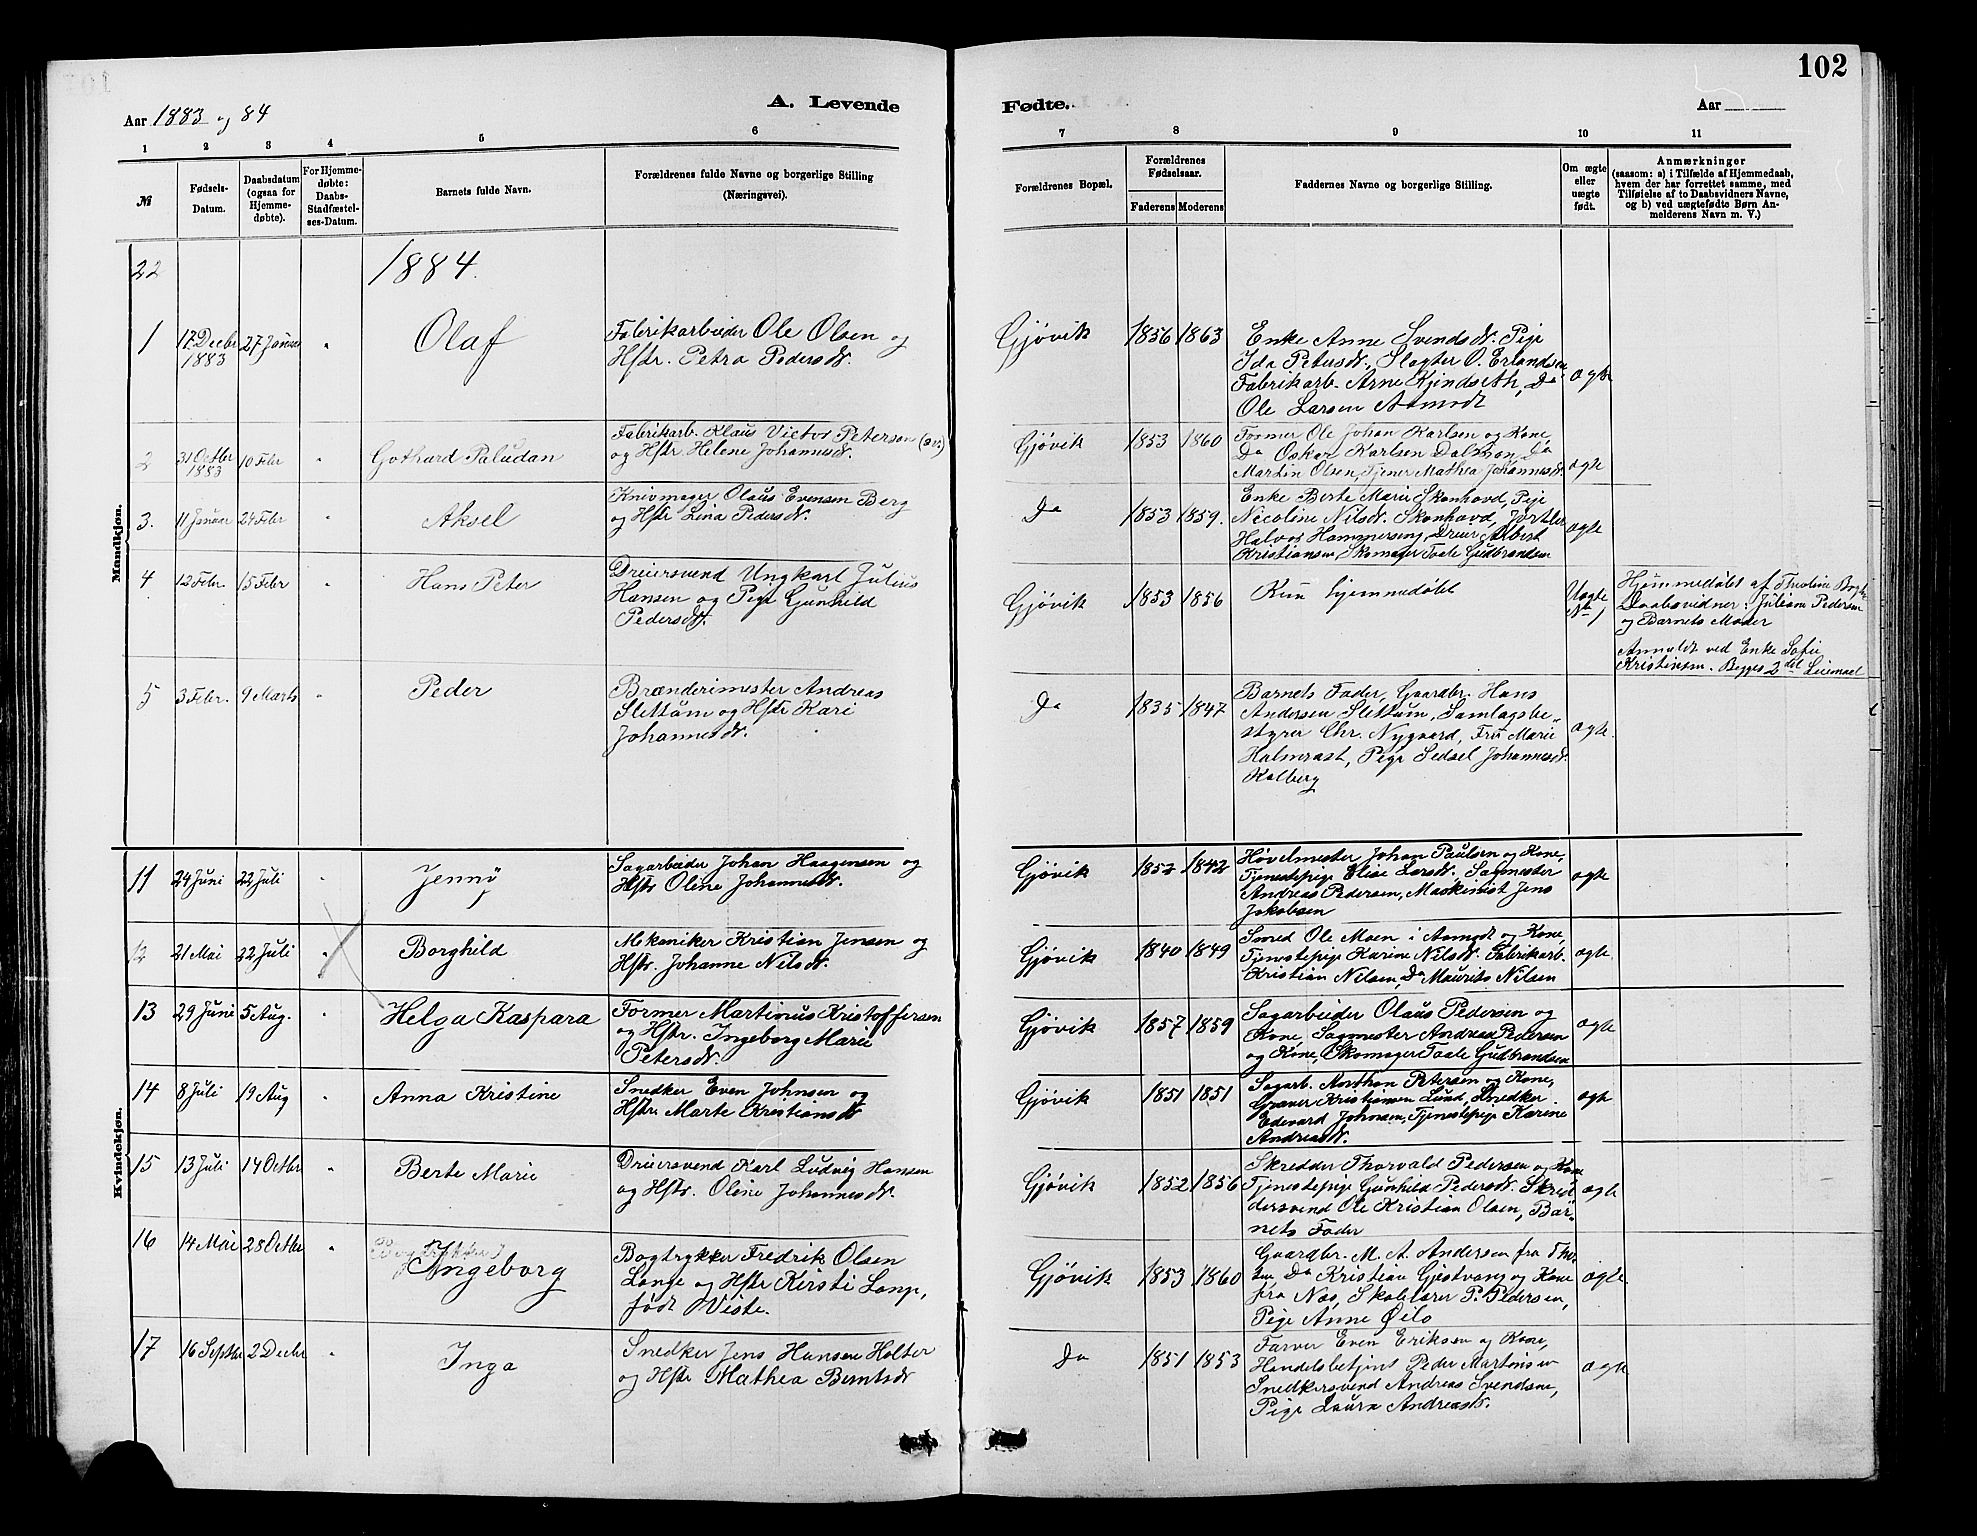 102
Aar 1883 og 84
A. Levende
Fødte.
Aar
1 2 3 4 5 6 7 8 9 10 11
№
Fødsels-
Datum.
Daabsdatum
(ogsaa for
Hjemme-
døbte).
For Hjemme-
døbte:
Daabs-
Stadfæstel-
ses-Datum.
Barnets fulde Navn.
Forældrenes fulde Navne og borgerlige Stilling
(Næringsvei).
Forældrenes Bopæl.
Forældrenes
Fødselsaar.
Faderens Moderens
Faddernes Navne og borgerlige Stilling.
Om ægte
eller
uægte
født.
Anmærkninger
(saasom: a) i Tilfælde af Hjemmedaab,
hvem der har forrettet samme, med
Tilføielse af to Daabsvidners Navne,
og b) ved uægtefødte Børn An-
melderens Navn m. V.)
Mandkjøn.
22
1884.
1 17 Decbr 1883 27 Januar " Olaf
Fabrikarbeider Ole Olsen og
Hstr. Petra Pedersdt.
Gjøvik 1856 1863
Enke Anne Svendsdt. Pige
Ida Petersdt., Slagter O. Erlandsen
Fabrikarb. Arne Kjindseth, Do
Ole Larsen Aamodt
ægte
2 31 Octbr 1883 10 Febr " Gothard Paludan
Fabrikarb. Klaus Victor Peterson
og Hstr. Helene Johannesdt.
Gjøvik 1853 1860
Former Ole Johan Karlsen og Kone,
Do Oskar Karlsen Dalmon, Do
Martin Olsen, Tjener Mathea Johannesdt.
ægte
3. 11 Januar 24 Febr " Aksel
Knivmager Olaus Evensen Berg
og Hstr Lina Pedersdt.
Do 1853 1859.
Enke Berte Marie Skonhovd, Pige
Nicoline Nilsdt. Skonhovd, Gjørtler
Halvor Hammerseng, Dreier Albert
Kristiansen, Skomager Taale Gudbrandsen
ægte
4 12 Febr. 15 Febr " Hans Peter
Dreiersvend Ungkarl Julius
Hansen og Pige Gunhild
Pedersdt.
Gjøvik 1853 1856
Kun hjemmedøbt
Uægte
Hjemmedøbt af Tholine
Daabsvidner: Juliane Pedersen
og Barnets Moder
Anmeldt ved Enke Sofie
Kristiansen. Begges 2det Leiemaal
5 3 Febr. 9 Marts " Peder
Brænderimester Andreas
Slettum og Hstr Kari
Johannesdt.
Do 1835 1847
Barnets Fader, Gaardbr. Hans
Andersen Slettum, Samlagsbe-
styrer Chr. Nygaard, Fru Marie
Halmrast, Pige Sedsel Johannesdt.
Kalberg
ægte.
Kvindekjøn.
11 24 Juni 22 Juli " Jenny
Sagarbeider Johan Haagensen og
Hstr Oline Johannesdt.
Gjøvik 1852 1842
Høvelmester Johan Paulsen og Kone,
Tjenestepige Elise Larsdt. Sagmester
Andreas Pedersen, Maskinist Jens
Jakobsen
ægte
12 21 Mai 22 Juli " Borghild
Mekaniker Kristian Jensen og
Hstr. Johanne Nilsdt.
Gjøvik 1840 1849
Smed Ole Moen i Aamodt og Kone,
Tjenestepige Karine Nilsdt. Fabrikarb.
Kristian Nilsen, Do Maurits Nilsen
ægte.
13 29 Juni 5 Aug. " Helga Kaspara
Former Martinus Kristoffersen
og Hstr. Ingeborg Marie
Petersdt.
Gjøvik 1857 1859
Sagarbeider Olaus Pedersen og
Kone, Sagmester Andreas Pedersen
og Kone, Skomager Taale Gudbrandsen
ægte
14 8 Juli 19 Aug " Anna Kristine
Snedker Even Johnsen og
Hstr. Marte Kristiansdt
Gjøvik 1851 1851
Sagarb. Anthon Petersen og Kone,
Graver Kristiansen Lund, Snedker
Edevard Johnsen, Tjenestepige Karine
Andreasdt.
ægte
15 13 Juli 14 Octbr " Berte Marie
Dreiersvend Karl Ludvig Hansen
og Hstr. Oline Johannesdt.
Gjøvik 1852 1856
Skredder Thorvald Pedersen og Kone
Tjenestepige Gunhild Pedersdt. Skred-
dersvend Ole Kristian Olsen, Bar-
nets Fader
ægte
16 14 Mai 28 Octbr " Ingeborg
Bogtrykker Fredrik Olsen
Lange og Hstr Kirsti Lange,
født Viste.
Gjøvik 1853 1860
Gaardbr. M. A. Andersen fra
Do Kristian Gjestvang og Kone
fra Næs, Skolelærer P. Pedersen,
Pige Anne Øilo
ægte.
17 16 Septbr 2 Decbr " Inga
Snedker Jens Hansen Holter
og Hstr Mathea Berntsdt
Do 1851 1853
Farver Even Eriksen og Kone,
Handelsbetjent Peder Martinsen
Snedkersvend Andreas Svendsen,
Pige Laura Andreasdt.
ægte